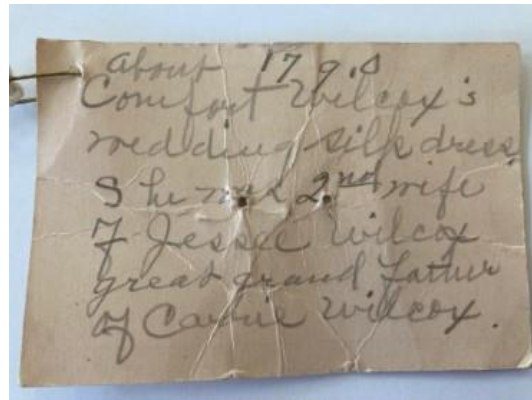 about 1790
Comfort Wilcox's
wedding silk dress,
She was 2nd wife
of Jesse Wilcox
great grand father
of Carrie Wilcox.